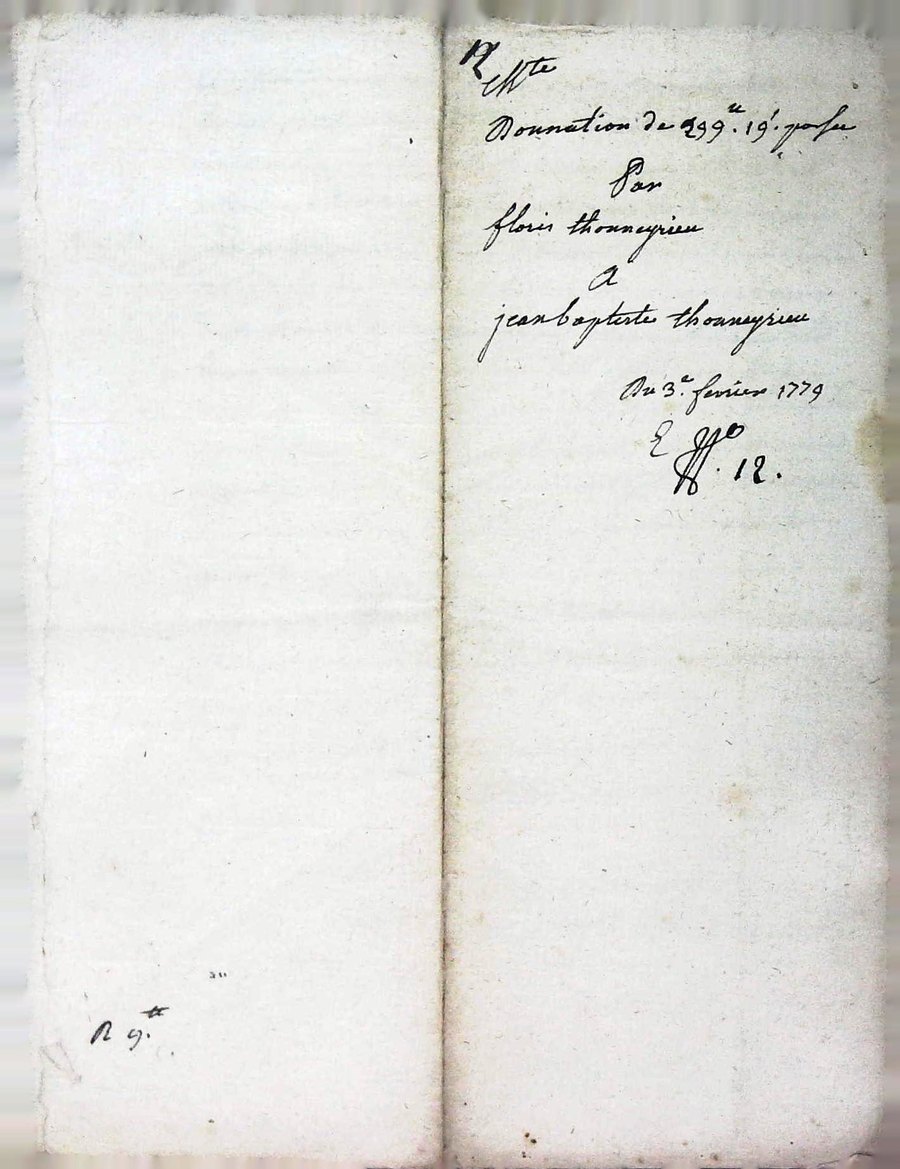 12
Donnation de 299.tt 19.s passée
Par
floris thonneyrieu
A
jean baptiste thonneyrieu
Du 3.e fevrier 1779
N.o 12.
R 9.tt